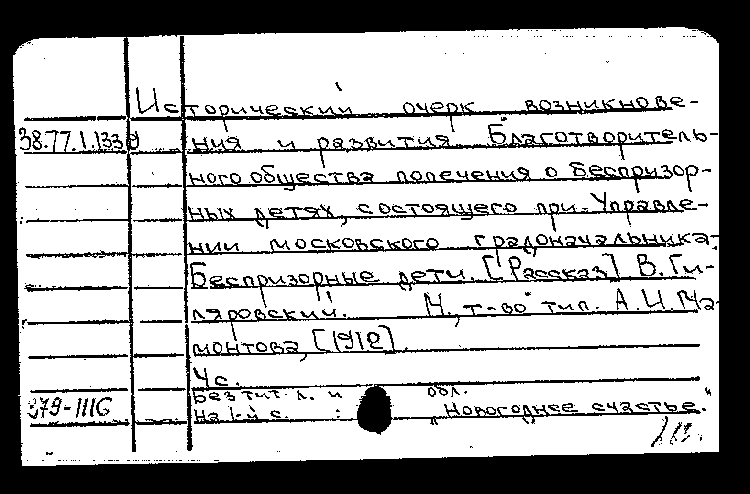 Исторический очерк возникнове-
38.77.1.133 ния и развития Благотворитель-
ного общества попечения о беспризор-
ных детях, состоящего при Управле-
нии московского градоначальника.
Беспризорные дети. [Рассказ] В. Ги-
ляровский. М., т-во тип. А. И. Ма-
монтова, [1912].
4 с.
Без тит. л. и обл.
379-1116 На 1-й с. : „Новогоднее счастье."